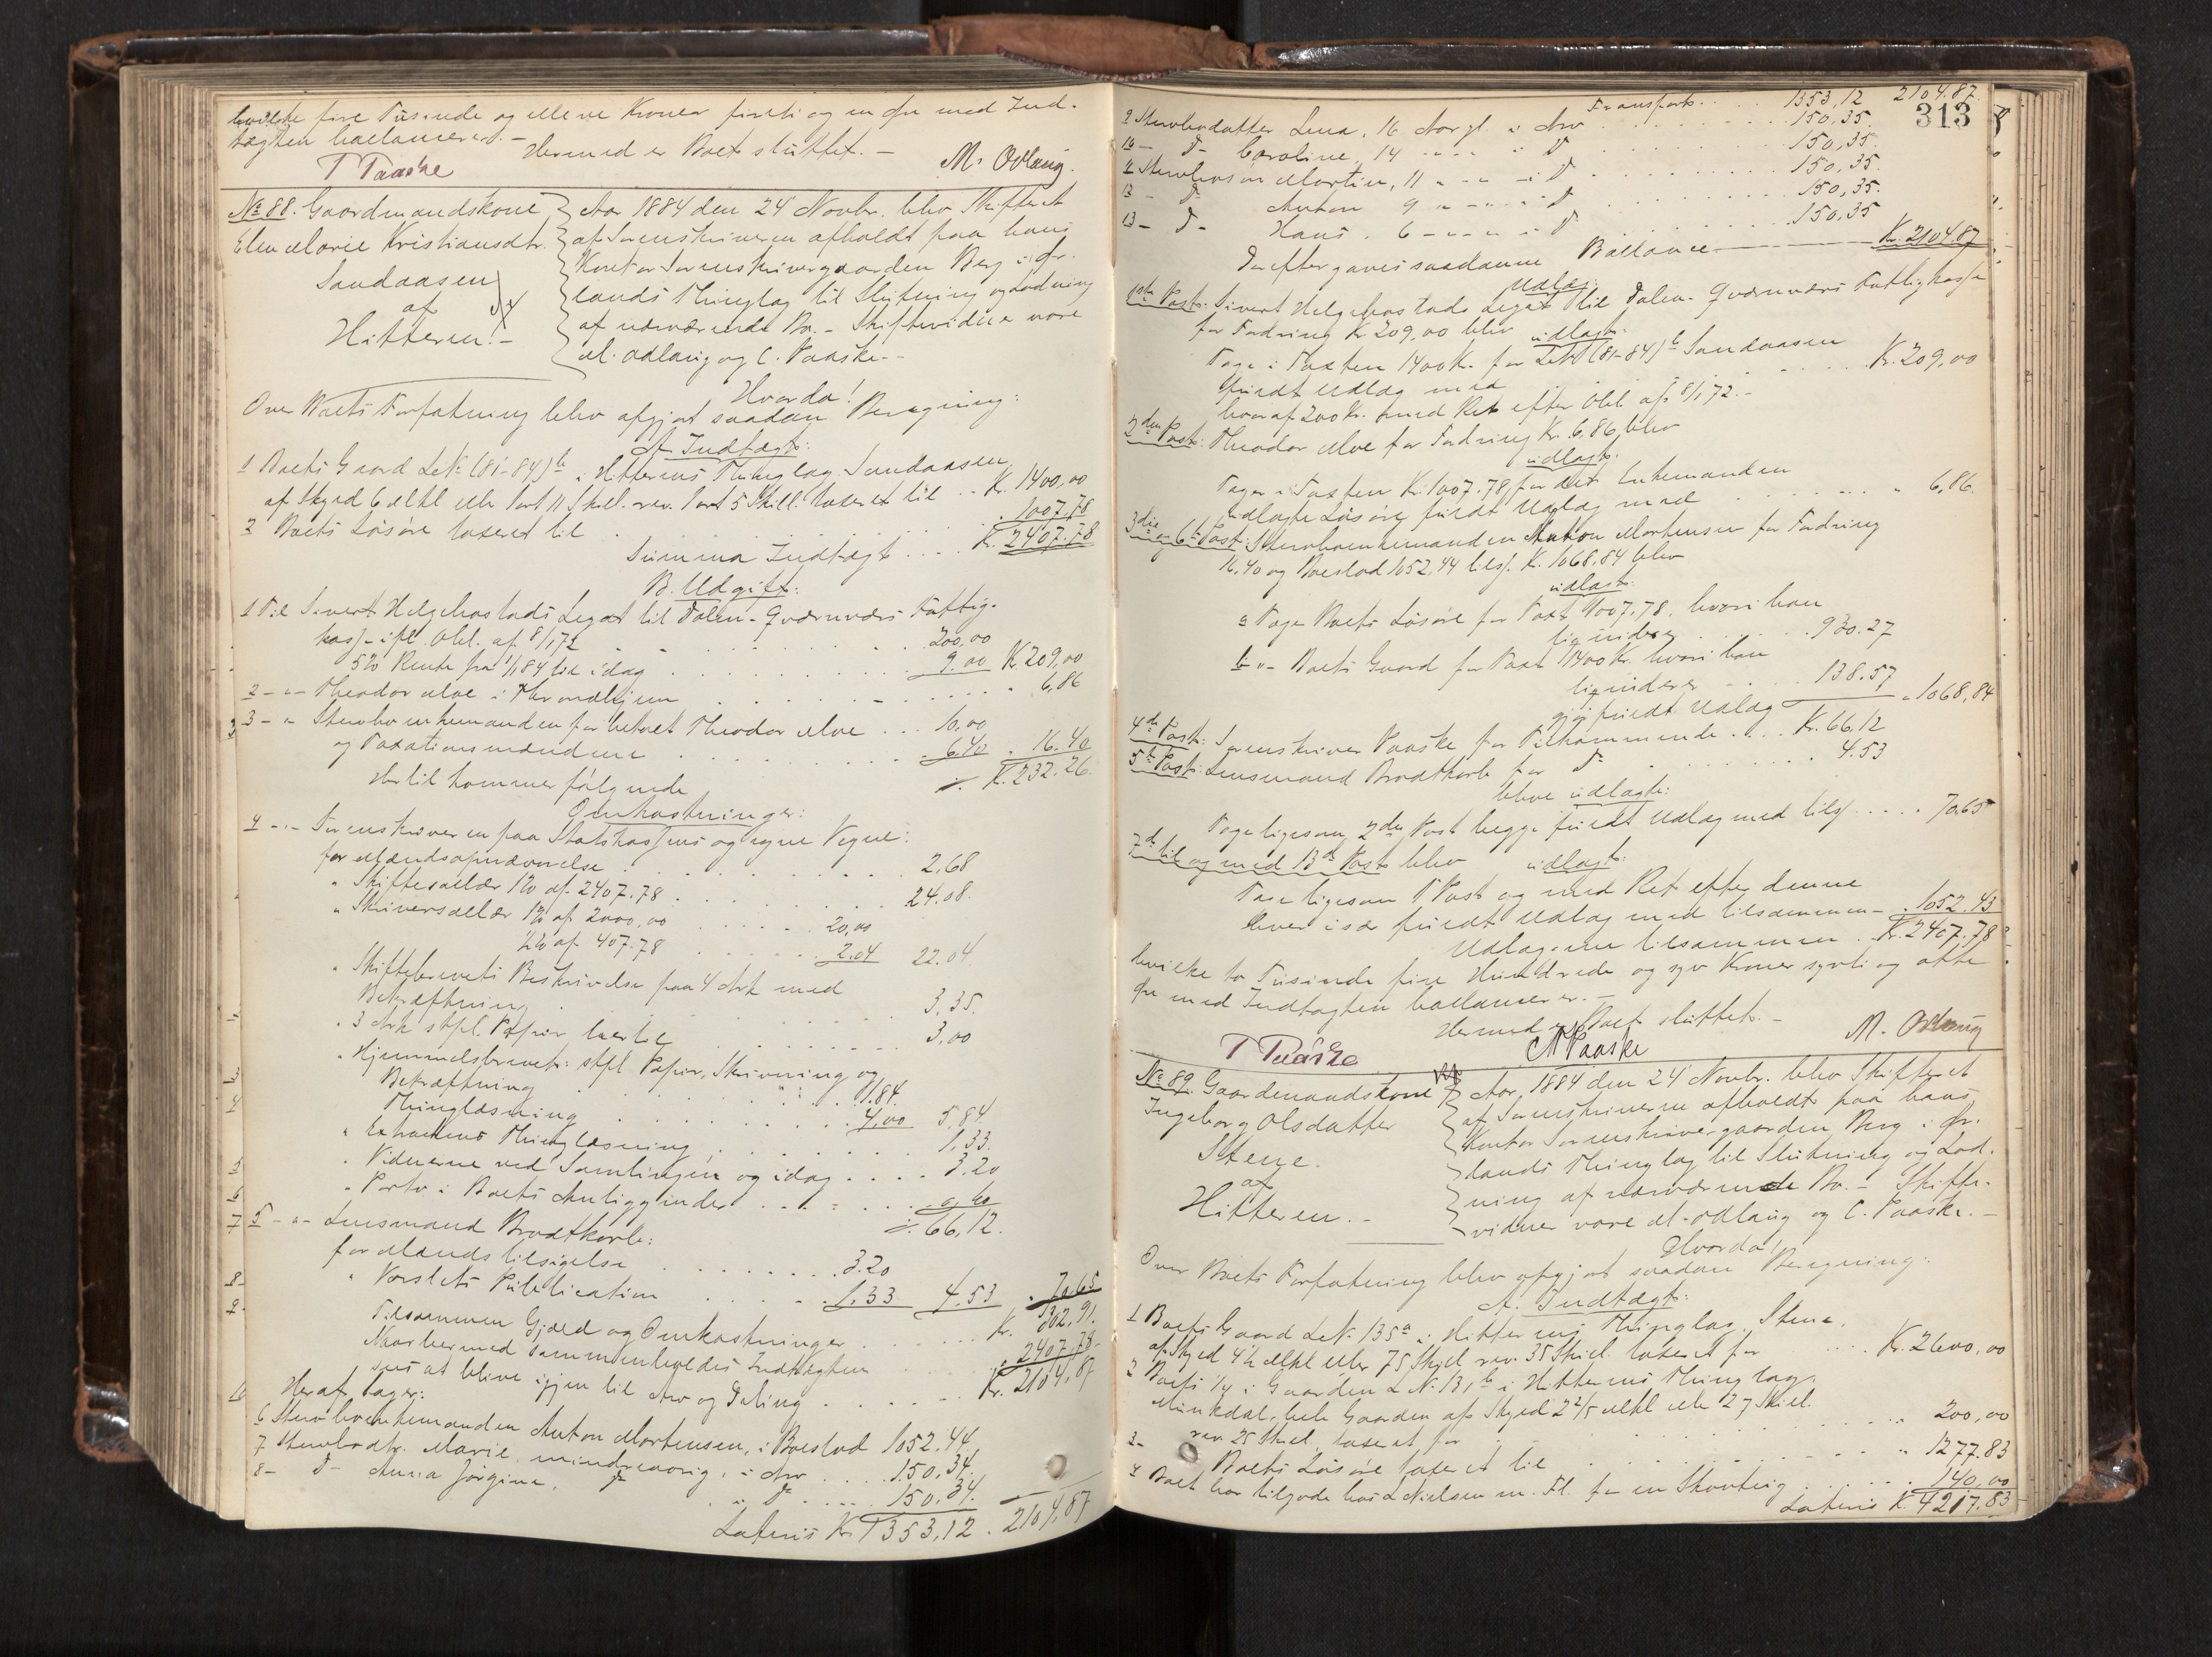 hvilke fire Tusinde og elleve Kroner firti og en Øre med Ind-
tægten balancerer. -
Hermed er Boet sluttet. -
T Paaske
M. Odlaug.
No 88. Gaardmandskone
Elen Marie Kristiansdtr.
Sandaasen
af
Hitteren. -
Aar 1884 den 24 Novbr. blev Skifteret
af Sorenskriveren afholdt paa hans
Kontor Sorenskrivergaarden Berg i Ør-
lands Thinglag til Slutning og Lodning
af nærværende Bo. - Skiftevidner vare
M. Odlaug og C. Paaske. -
Hvorda!
Over Boets Forfatning blev afgjort saadan Beregning:
A. Indtægt:
1 Boets Gaard LNo (81-84)b i Hitterens Thinglag Sandaasen
af Skyld 6 Mkl eller 1 ort 11 Skil. rev. 1 ort 5 Skill. taxeret til .. Kr. 1400,00
2 Boets Løsøre taxeret til . . . . 1007,78
Summa Indtægt .... Kr. 2407.78
B. Udgift:
1 Til Sivert Helgebostads Legat til Dolm-Qværnværs Fattig-
kasse ifl. Obl. af 8/1 72 . . . 200,00
5% Rente fra 1/1 84 til idag . . . 9.00 Kr. 209,00
2 - " - Theodor Moe i Throndhjem . . . . 6,86
3 - " Stervboenkemanden for betalt Theodor Moe . . . 10,00
og Taxationsmændene . . . . 6.40 . 16.40
Hertil kommer følgende ./. Kr. 232.26.
Omkostninger:
4 - " - Sorenskriveren paa Statskassens og egne Vegne:
for Mændsopnævnelse . . . . 2,68
" Skiftesallær 1% af 2407.78 . . . . 24.08.
" Skriversallær 1% af 2000,00 . . . . 20,00
½% af 407.78 . . . . 2.04 22.04
" Skiftebrevets Beskrivelse paa 4 Ark med
Bekræftning . . . . 3,35.
" 3 Ark stpl. Papir hertil . . . . 3,00
" Hjemmelsbrevet: stpl Papir, Skrivning og
Bekræftning . . . . 1.84.
Thinglæsning . . . . 4,00 5,84
" Thinglæsning . . . . 1,33.
" Vidnerne ved Samlingen og idag . . . . 3.20
" Porto i Boets Anliggender . . . . 0,60
./. 66,12.
5 - " - Lensmand Brodtkorb:
for Mænds tilsigelse . . . . 3.20
" Varslets Publication . . . . 1.33 4.53 . 70.65
Tilsammen Gjæld og Omkostninger . . . Kr. 302.91.
Naar hermed sammenholdes Indtægten . . . 2407.78.
sees at blive igjen til Arv og Deling . . . . Kr. 2104,87
Heraf tager:
6 Stervboenkemanden Anton Mortensen, i Boeslod 1052.44.
7 Stervbodtr. Marie, mindreaarig, i Arv . . . 150,34.
8 - Do Anna Jørgine, Do " Do .... 150,34.
Lateris Kr. 1353,12 . 2104,87
313
Transport. . . 1353,12 2104.87.
9 Stervbodatter Lena, 16 Aar gl. i Arv . . . . 150,35.
10 - Do Caroline, 14 " - " - " Do . . . . 150,35.
11 Stervbosøn Martin, 11 " - " - i Do . . . . 150,35.
12 - Do Anton 9 " - " - " Do . . . . 150,35.
13 - Do Hans . 6 - " - " - i Do . . . . 150,35
Kr. 2104.87
Derefter gaves saadanne Ballance
Udlæg:
1ste Post: Sivert Helgebostads Legat til Dolm-Qværnværs Fattigkasse
for Fordring Kr. 209,00 blev udlagt:
Tage i Taxten 1400 Kr. for LNo (81-84)b Sandaasen
fuldt Udlæg med . . . . Kr. 209,00
hvoraf 200 Kr. med Ret efter Obl. af 8/1 72. -
2den Post: Theodor Moe for Fordring Kr. 6,86 blev
udlagt:
Tager i Taxten Kr. 1007.78 for det Enkemanden
udlagte Løsøre fuldt Udlæg med . . . . " 6,86.
3die og 6te Post: Stervboenkemanden Anton Mortensen for Fordring
16.40 og Boeslod 1052,44 tils. Kr. 1068,84 blev
udlagt:
a Tage Boets Løsøre for Taxt 1007.78. hvori han
liqviderer . . . . 930.27
b " - Boets Gaard for Taxt 1400 Kr. hvori han
liqviderer . . . . 138.57
gjør fuldt Udlæg " 1068,84
4de Post: Sorenskriver Paaske for Tilkommende . . . Kr. 66,12
5te Post: Lensmand Brodtkorb for Do . . . . 4.53
bleve udlagte:
Tage ligesom 2den Post begge fuldt Udlæg med tils. . . . 70,65
7de til og med 13de Post blev udlagt:
Tage ligesom 1 Post og med Ret efter denne
hver især fuldt Udlæg med tilsammen - 1052.43
Udlægene tilsammen . Kr. 2407.78
hvilke to Tusinde fire Hundrede og syv Kroner sytti og otte
Øre med Indtægten balancerer. -
Hermed er Boet sluttet. -
T Paaske
C Paaske
M. Odlaug
No 89. Gaardmandskone
Ingeborg Olsdatter
Stene.
af
Hitteren. -
Aar 1884 den 24 Novbr. blev Skifteret
af Sorenskriveren afholdt paa hans
Kontor Sorenskrivergaarden Berg i Ør-
lands Thinglag til Slutning og Lod-
ning af nærværende Bo. - Skifte-
vidner vare M. Odlaug og C. Paaske. -
Hvorda!
Over Boets Forfatning blev afgjort saadan Beregning:
A. Indtægt:
1 Boets Gaard LNo 135a i Hitterens Thinglag Stene,
af Skyld 4½ Mkl eller 75 Skil. rev. 35 Skil. taxeret for . . . Kr. 2600,00
2 Boets ¼ i Gaarden LNo 131b i Hitterens Thinglag
Minkdal, hele Gaarden af Skyld 2 2/5 Mkl eller 27 Skil.
rev. 25 Skil. taxeret for . . . . 200,00
3 - Boets Løsøre taxeret til . . . . " 1277.83
4 Boet har tilgode hos L Nielsen m. Fl. for en . . . . 140,00
Lateris Kr. 4217.83